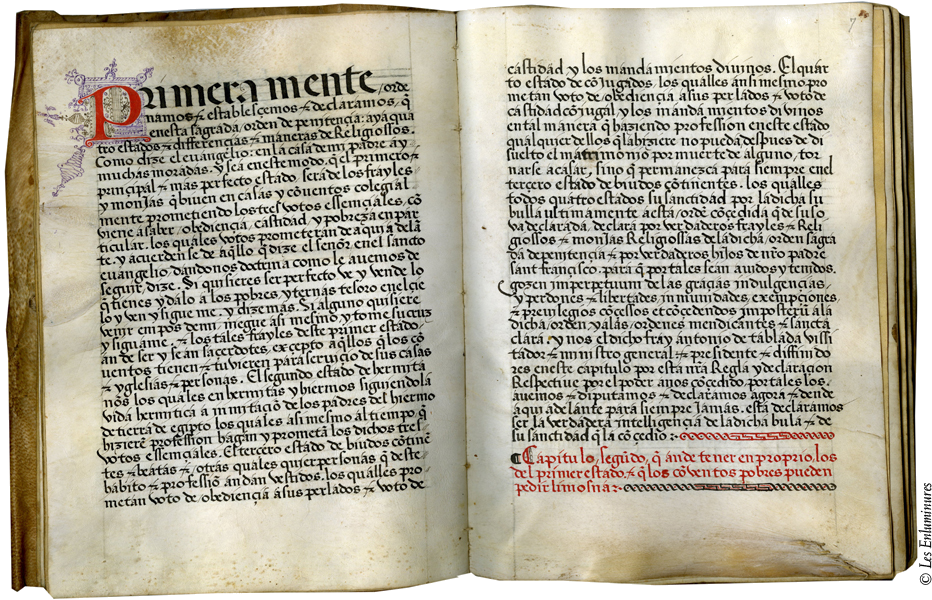 Primeramente /orde
namos & establesçemos & declaramos, q̃
enesta sagrada /orden de penitençia: aya qua
tro estados & differençias & maneras de Religiossos.
Como dize el euangelio: en la casa de mi padre ay
muchas moradas. y sea en este modo. q̃ el primero &
prinçipal & mas perfecto estado sera de los frayles
y monjas q̃ biuen en casas y cõuentos colegial
mente prometiendo los tres votos essençiales, cõ
viene a saber /obediençia, castidad y pobreza en par
ticular. los quales votos prometerán de aqui adelã
te. y acuerden se de aq̃llo q̃ dize el señor enel sancto
euangelio /dandonos doctrina como le auemos de
seguir, dize. Si quisieres ser perfecto ve y vende lo
q̃ tienes y dalo a los pobres, y ternas tesoro enel çie
lo y ven y sigue me. y dize mas. Si alguno quisiere
venir em pos de mi /niegue asi mesmo y tome su cruz
y sigua me. & los tales frayles deste primer estado /
an de ser y sean saçerdotes, excepto aq̃llos q̃ los cõ
uentos tienen & tuvieren para serviçio de sus casas
& yglesias & personas. El segundo estado de hermita
ños los quales en hermitas y hiermos siguiendo la
vida hermitica a immitaçiõ de los padres del hiermo
de tierra de egipto los quales asi mesmo al tiempo q̃
hizierẽ profession hagan y prometã los dichos tres
votos essençiales. El terçero estado de biudos cõtinẽ
tes & beatas & /otras quales quier personas q̃ deste
habito & professiõ andan vestidos. los qualles pro
metan voto de /obediençia á sus perlados & voto de
7
castidad y los mandamientos divinos. El quar
to estado de cõjugados. los qualles ansi mesmo pro
metan voto de /obediençia a sus perlados & voto de
castidad conjugal y los mandamientos divinos
en tal manera q̃ haziendo profession en este estado
qual quier dellos q̃ la hiziere no pueda despues de di
suelto el matrimonio por muerte de alguno / tor
narse a casar, sino q̃ permanezca para siempre enel
terçero estado de biudos cõtinentes. los qualles
todos quatro estados su sanctidad por la dicha su
bulla ultimamente a esta /ordẽ cõçedida q̃ de suso
va declarada, declara por verdaderos frayles & Reli
giossos & monjas Religiossas de la dicha /orden sagra
da de penitençia & por verdaderos hijos de nr̃o padre
sant françisco. para q̃ por tales sean auidos y tenidos.
gozen imperpetuum de las graçias indulgençias /
y perdones & libertades inmunidades, exempçiones,
& previlegios cõçessos et cõçedendos imposterũ a la
dicha /orden y a las /ordenes mendicantes & sancta
clara. y nos el dicho fray antonio de tablada vissi
tador & ministro general & presidente & diffinido
res en este capitulo por esta nr̃a Regla y declaraçion
Respective por el poder a nos cõçedido. por tales los.
auemos & diputamos & declaramos agora & dende
aqui adelante para siempre Jamas. esta declaramos
ser la verdadera intelligençia de la dicha bula & de
su sanctidad q̃ la cõçedio :~
Capitulo. segũdo, q̃ an de tener en proprio. los
del primer estado & q̃ los cõventos pobres pueden
pedir limosna :~
© Les Enluminures